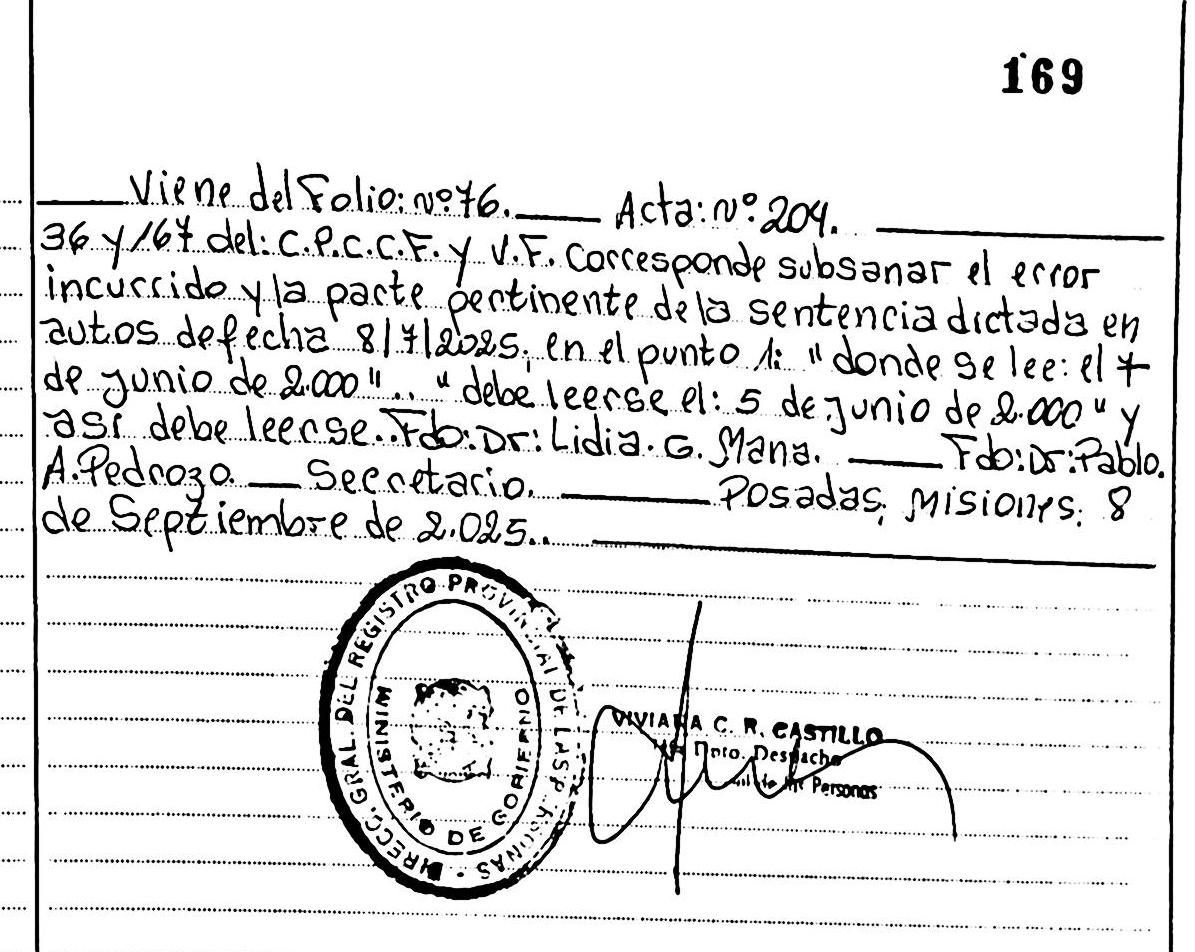 169
Viene del Folio: Nº 76. Acta: Nº 204.
36 y 167 del: C.P.C.C.F. y V.F. Corresponde subsanar el error
incurrido y la parte pertinente de la sentencia dictada en
autos de fecha 8/7/2025, en el punto 1: "donde se lee: el 7
de junio de 2.000".. "debe leerse el: 5 de junio de 2.000" y
así debe leerse.. Fdo: Dr: Lidia. G. Mana. Fdo: Dr: Pablo.
A. Pedrozo. Secretario. Posadas, Misiones, 8
de Septiembre de 2.025..
DIRECC. GRAL. DEL REGISTRO PROVINCIAL DE LAS PERSONAS
MINISTERIO DE GOBIERNO
VIVIANA C. R. CASTILLO
Dpto. Despacho
Personas